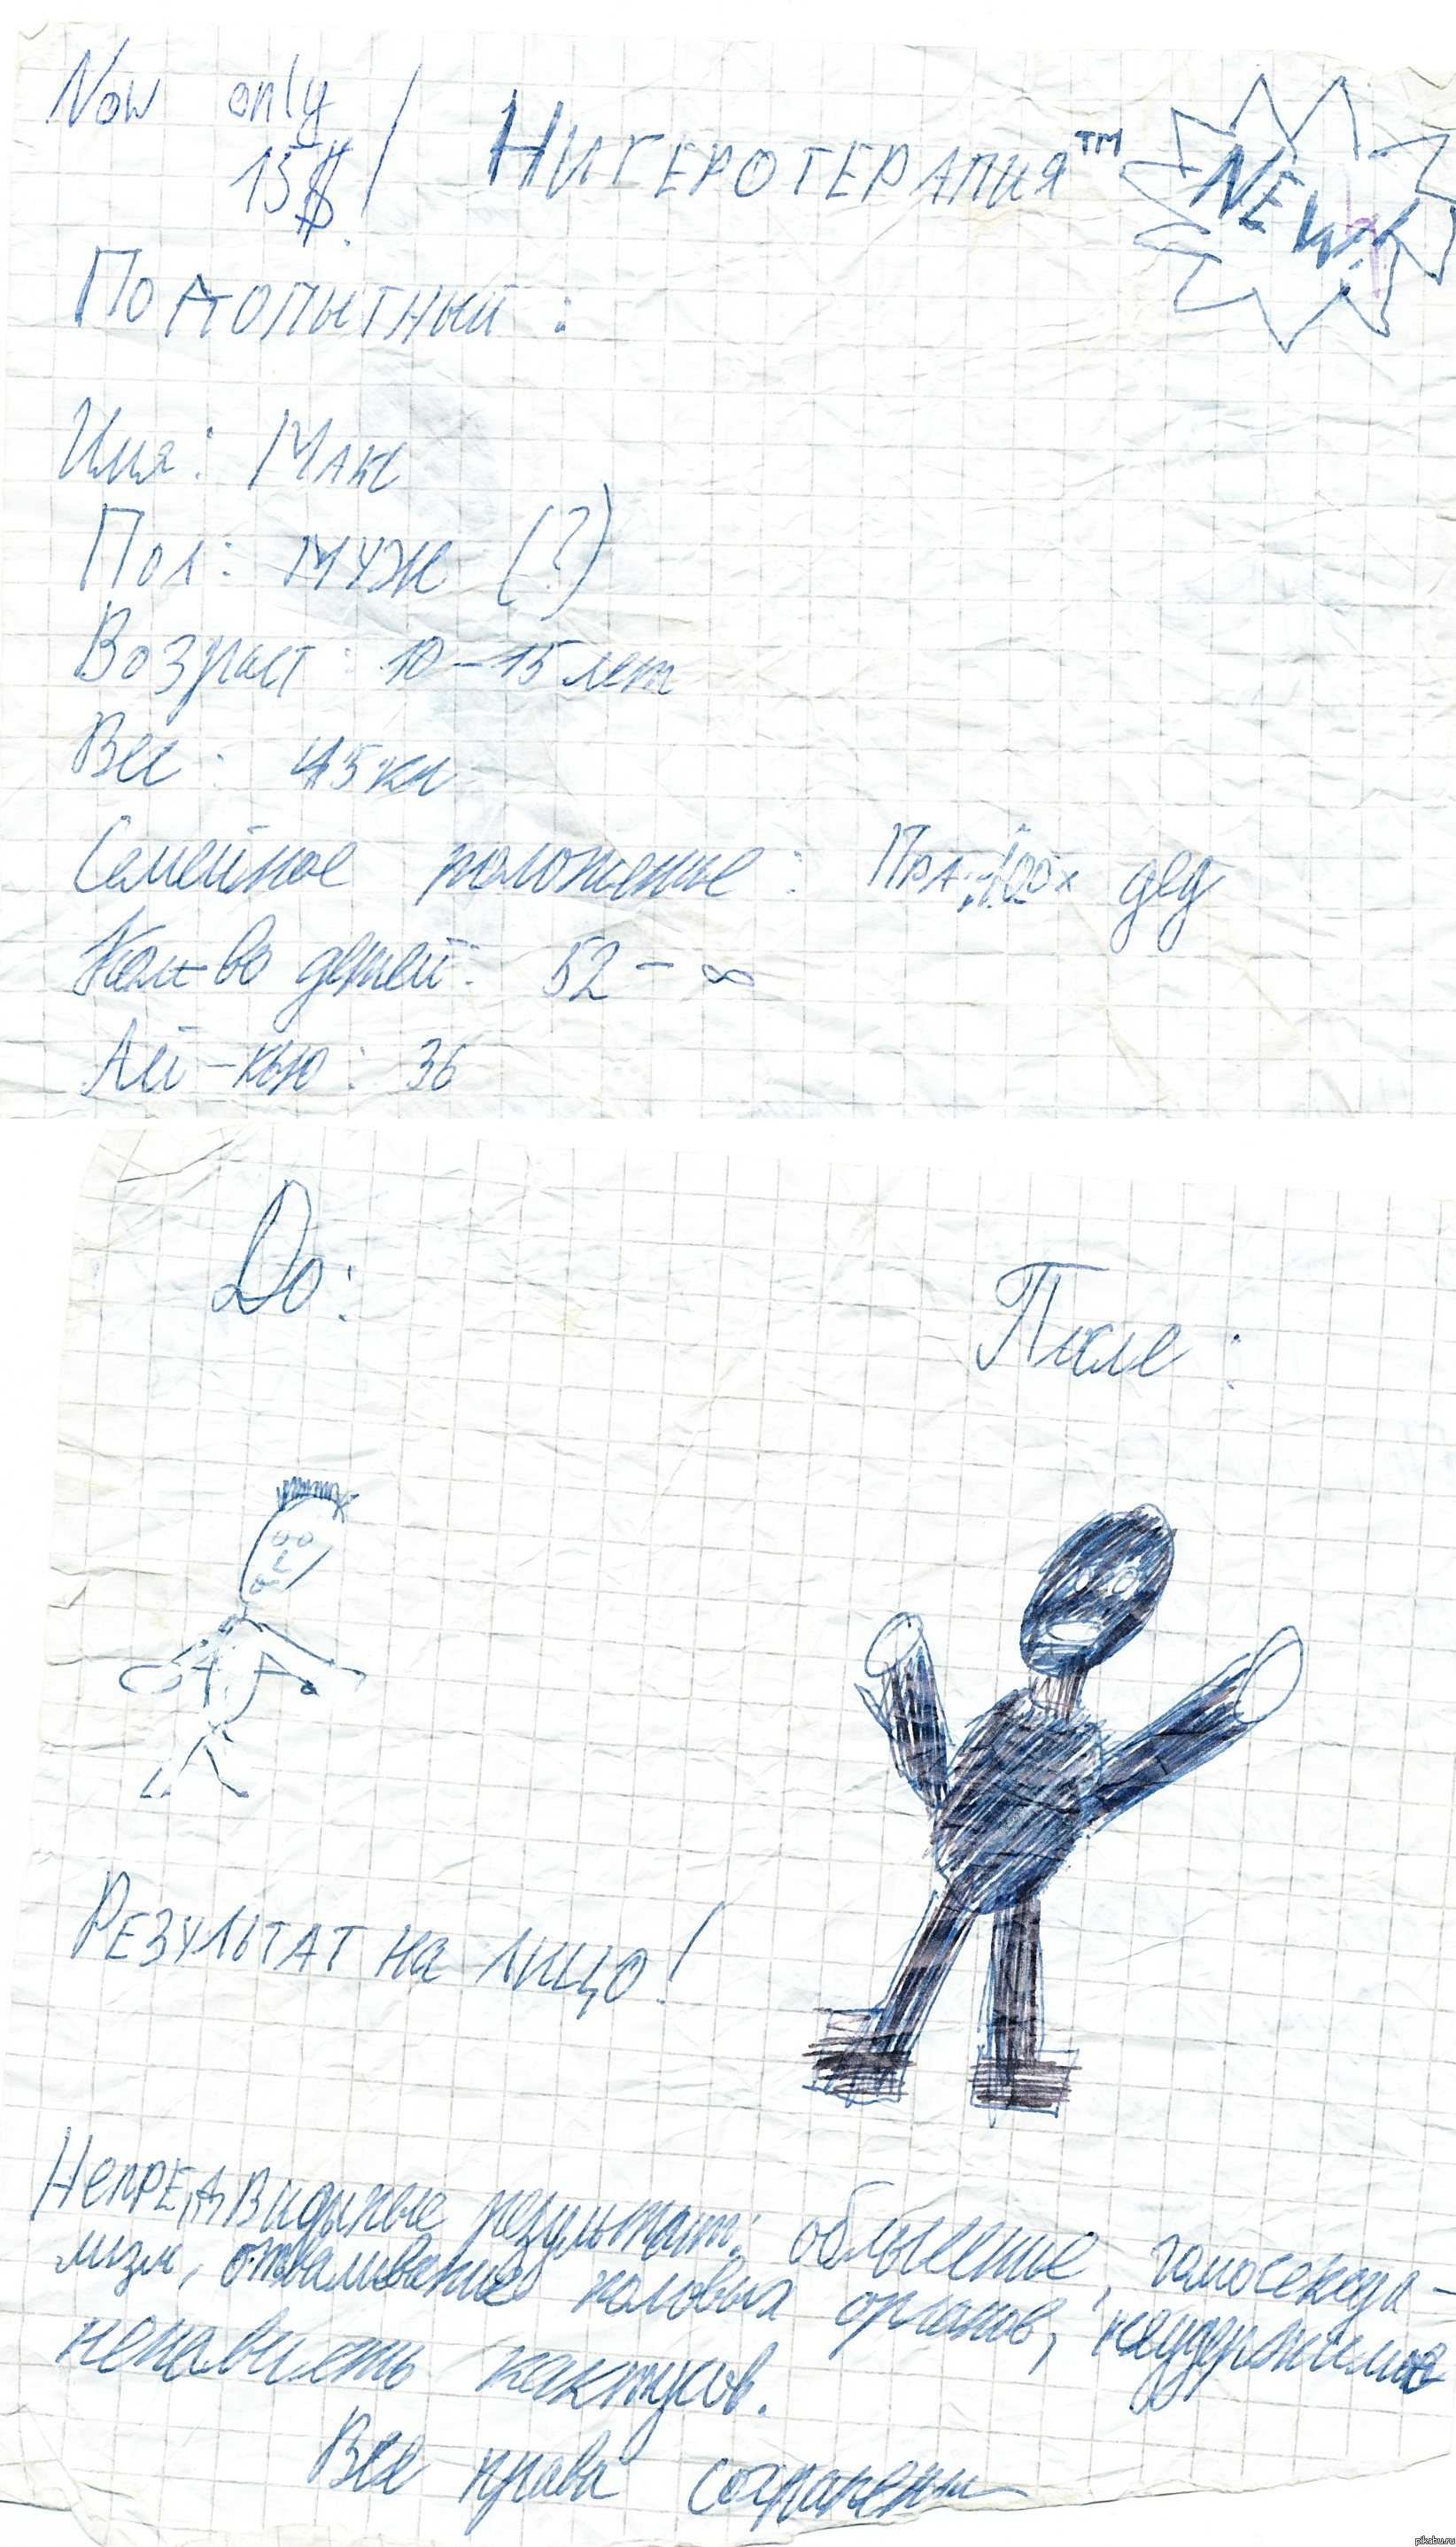 Now only
15$!
Нигеротерапия™
NEW!
Подопытный:
Имя: Макс
Пол: муж (?)
Возраст: 10-15 лет
Вес: 45 кг
Семейное положение: Пра-100х дед
Кол-во детей: 52 - ∞
Ай-кью: 36
До:
После:
Результат на лицо!
Непредвидиные результаты: облысение, гомосексуа-
лизм, отваливание половых органов, неудержимая
ненависть кактусов.
Все права сохранены
pikabu.ru